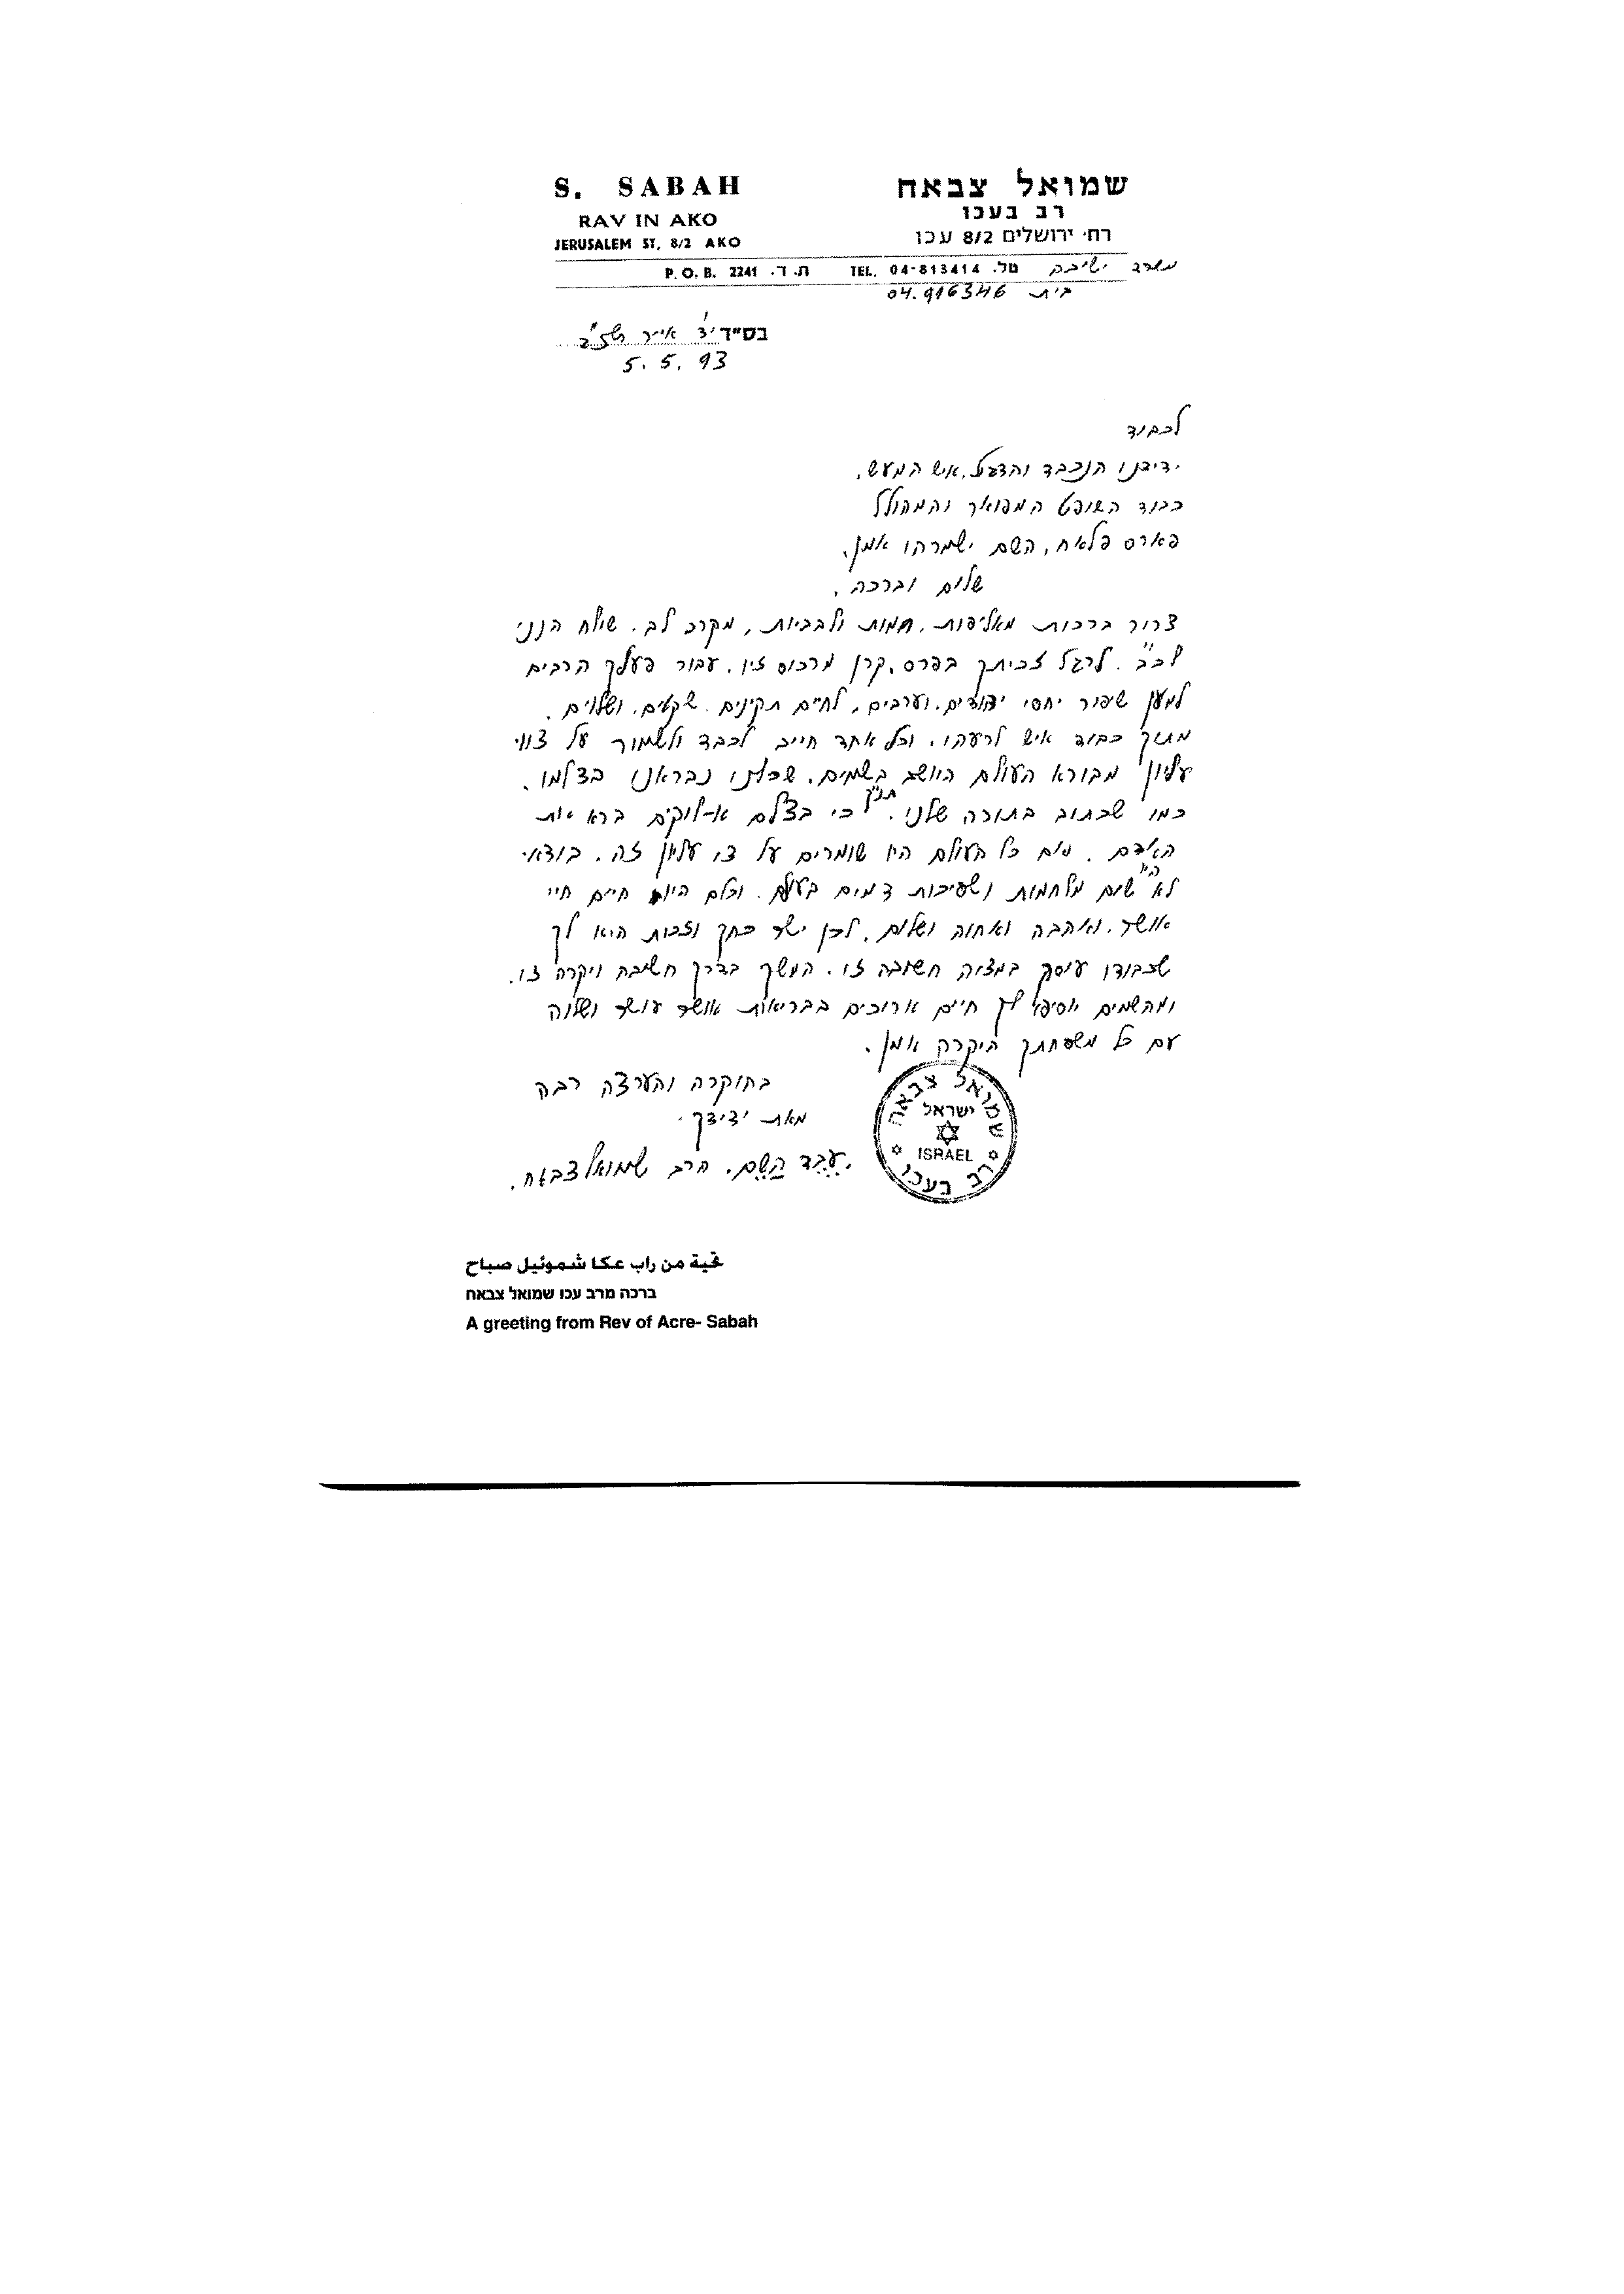 S. SABAH
RAV IN AKO
JERUSALEM ST, 8/2 AKO
שמואל צבאח
רב בעכו
רח׳ ירושלים 8/2 עכו
P. O. B. 2241 ת. ד. TEL. 04-813414 טל. משרד ישיבה
בית 04.916346
בס״ד י״ד אייר
5. 5. 93
לכבוד
ידידנו הנכבד והדגול, איש המעש,
כבוד השופט המפואר והמהולל
פארס פלאח, השם ישמרהו אמן.
שלום וברכה,
צרור ברכות מאליפות, חמות ולבביות, מקרב לב. שולח הנני
לכב׳׳. לרגל זכיתך בפרס, קרן מרכוס זיו, עבור פעלך הרבים
למען שיפור יחסי יהודים, וערבים, לחיים תקינים. שקטים, ושלוים.
מתוך כבוד איש לרעהו, וכל אחד חייב לכבד ולשמור על צווי
עליון מבורא העולם היושב בשמים, שכולנו נבראנו בצלמו,
כמו שכתוב בתורה שלנו. תנ״ך כי בצלם א-לוקים ברא את
האדם. אם כל העולם היו שומרים על צו עליון זה. בודאי
לא היו שום מלחמות ושפיכות דמים בעולם. וכולם היו חיים חיי
אושר, ואהבה ואחוה ושלום, לכן ישר כחך וזכות היא לך
שכבודו עוסק במצוה חשובה זו. המשך בדרך חשובה ויקרה זו.
ומהשמים יוסיפו לך חיים ארוכים בבריאות אושר עושר ושלוה
עם כל משפחתך היקרה אמן.
בהוקרה והערצה רבה
מאת ידידך.
עבד השם, הרב שמואל צבאח.
שמואל צבאח
ישראל
ISRAEL
רב בעכו
تحية من راب عكا شموئيل صباح
ברכה מרב עכו שמואל צבאח
A greeting from Rev of Acre- Sabah